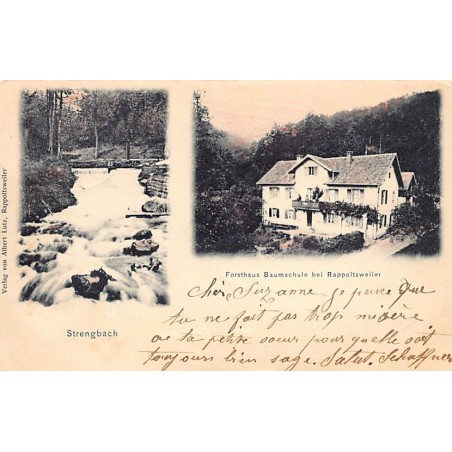 Verlag von Albert Lutz, Rappoltsweiler
Forsthaus Baumschule bei Rappoltsweiler
Strengbach
chère Suzanne je pense que
tu ne fait pas trop misère
a ta petite soeur pour quelle soit
toujours bien sage. Salut. Schaffner